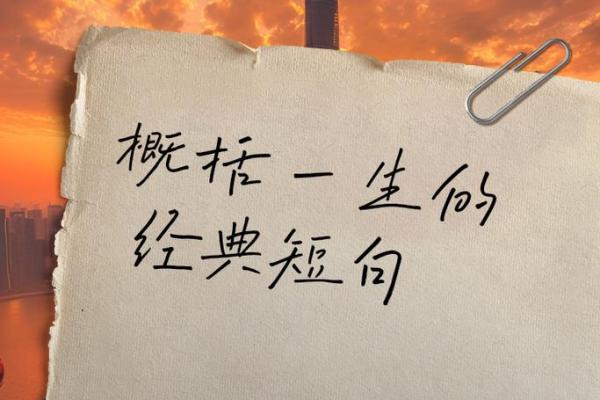 概括一生的
经典短句